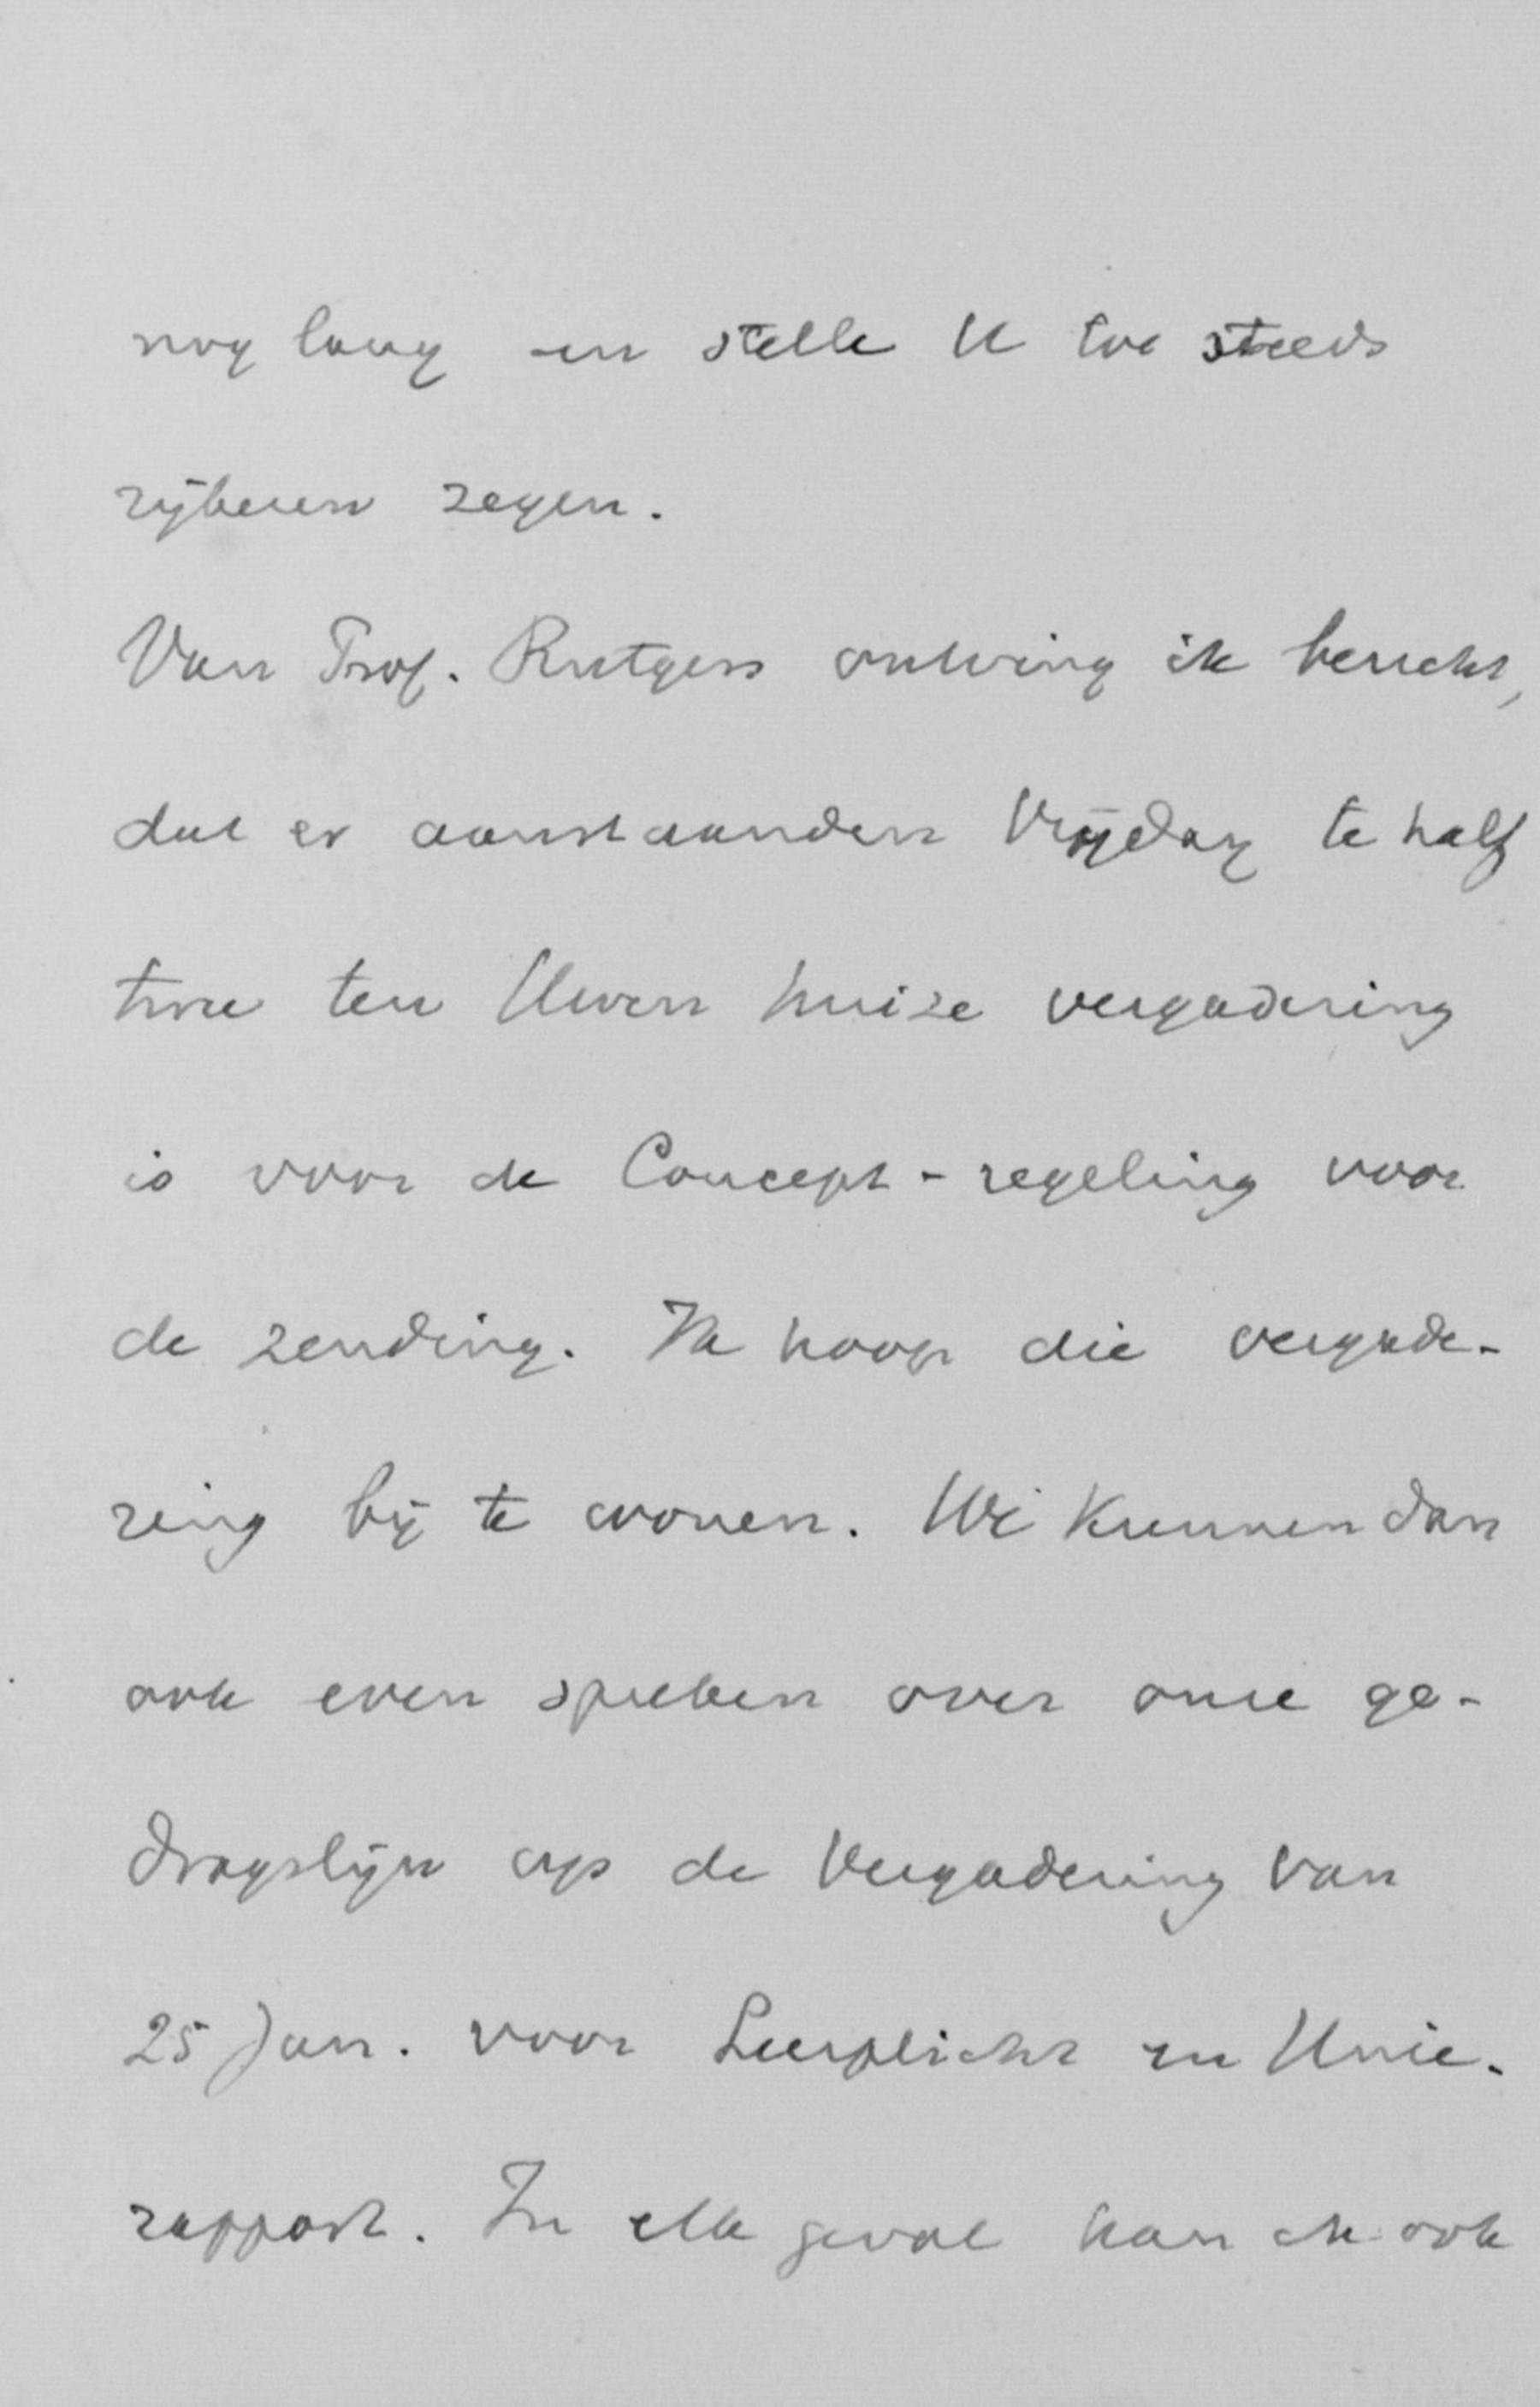 nog lang en stelle U tot steeds
rijkeren zegen.
Van Prof. Rutgers ontving ik bericht,
dat er aanstaanden Vrijdag te half
twee ten Uwen huize vergadering
is voor de Concept-regeling voor
de zending. Ik hoop die vergade-
ring bij te wonen. We kunnen dan
ook even spreken over onze ge-
dragslijn op de Vergadering van
25 Jan. voor Leerplicht en Unie-
rapport. In elk geval kan ik ook